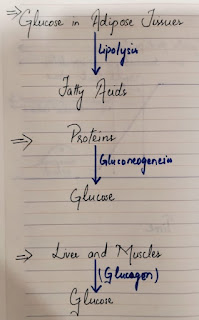 ⇒ Glucose in Adipose Tissues
Lipolysis
Fatty Acids
⇒ Proteins
Gluconeogenesis
Glucose
⇒ Liver and Muscles
(Glucagon)
Glucose